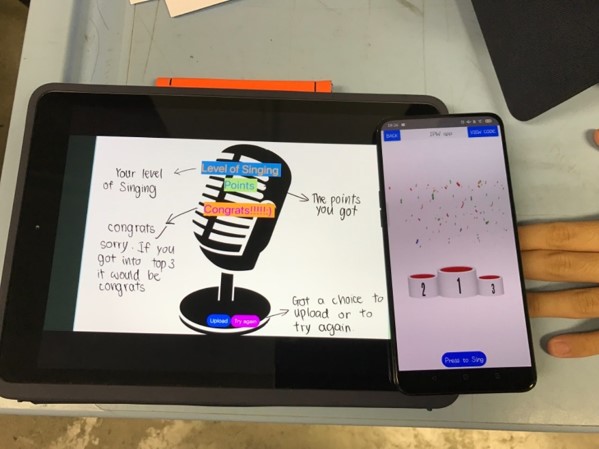 Your level
of Singing
Level of Singing
Points
Congrats!!!!!:)
The points
you got
congrats
sorry. If you
got into top 3
it would be
congrats
Upload
Try again
Got a choice to
upload or to
try again
BACK
VIEW CODE
2
1
3
Press to Sing